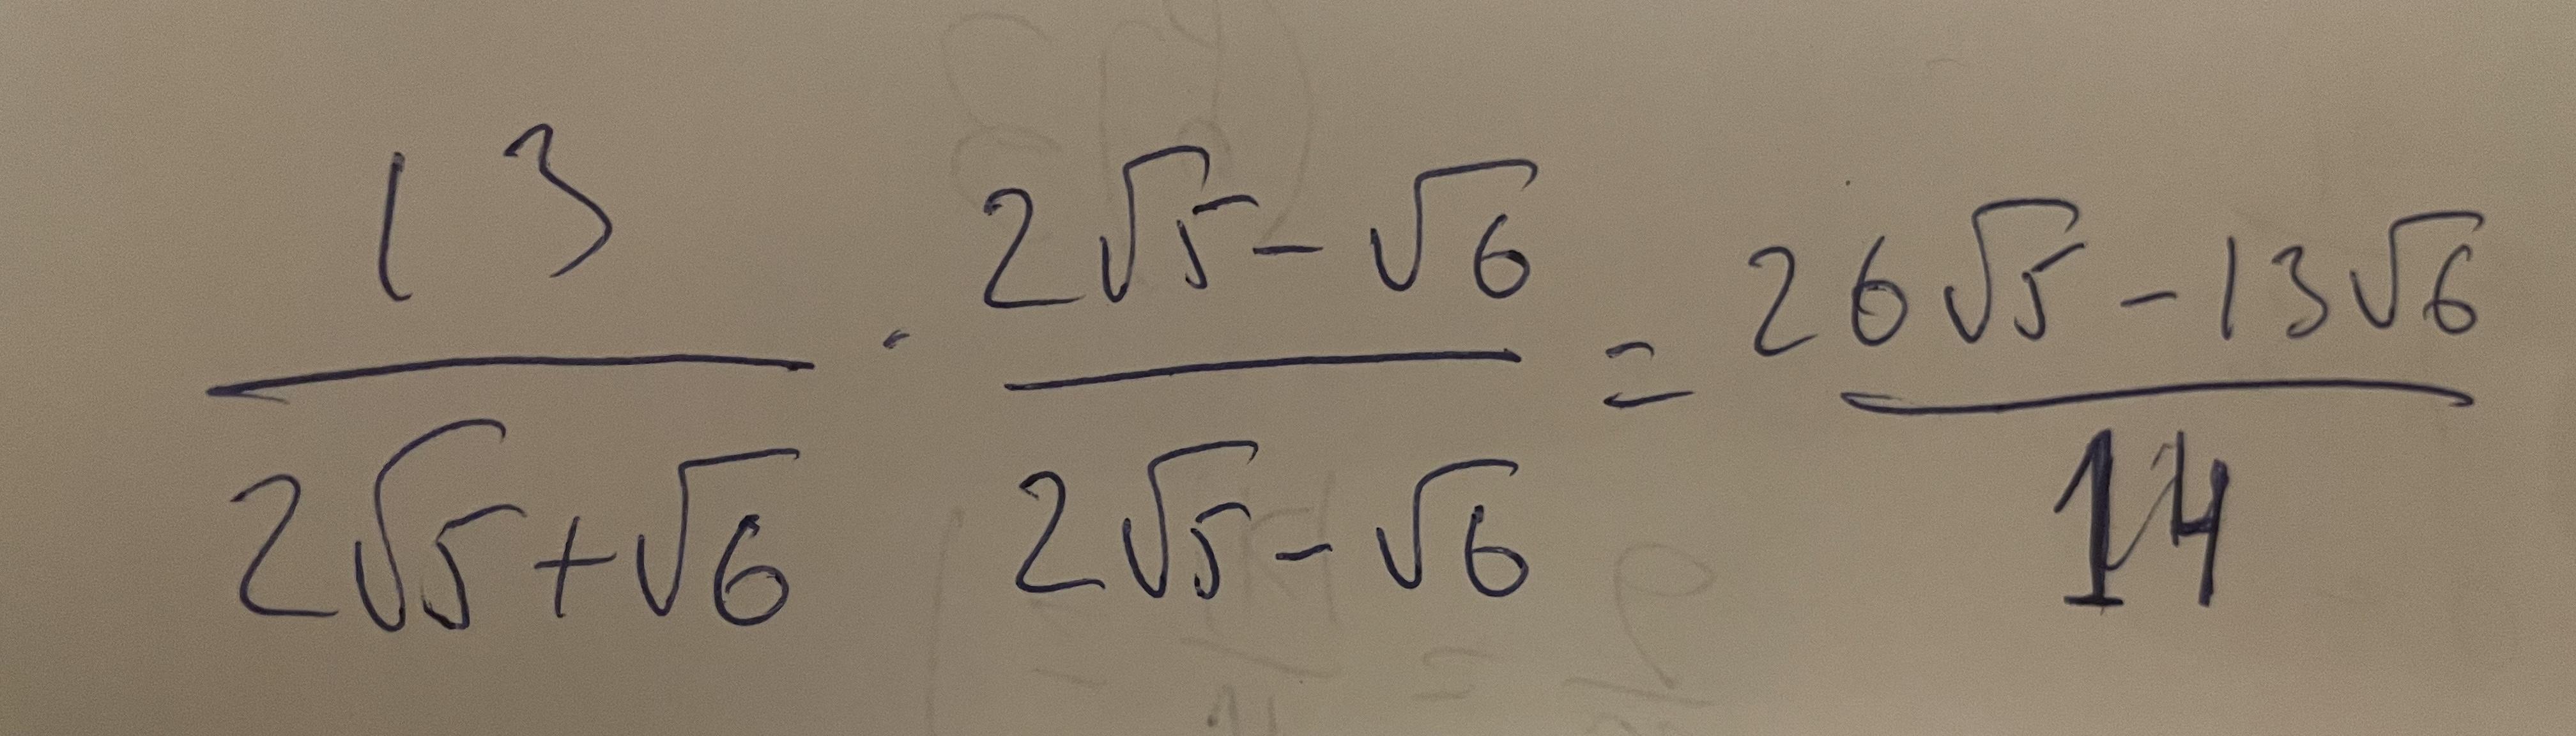 13/(2√5+√6) · (2√5-√6)/(2√5-√6) = (26√5-13√6)/14